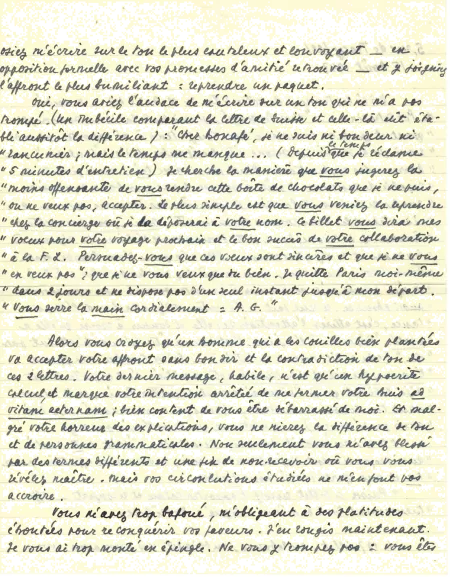 osiez m'écrire sur le ton le plus cauteleux et louvoyant — en
opposition formelle avec vos promesses d'amitié retrouvée — et y joigniez
l'affront le plus humiliant : reprendre un paquet.
Oui, vous aviez l'audace de m'écrire sur un ton qui ne m'a pas
trompé. (un imbécile comparant la lettre de Suisse et celle-là eût éta-
bli aussitôt la différence) : "Cher Bonafé, je ne suis ni boudeur ni
"rancunier ; mais le temps me manque ... (Depuis le temps que je réclame
"5 minutes d'entretien) Je cherche la manière que vous jugerez la
"moins offensante de vous rendre cette boîte de chocolats que je ne puis,
"ou ne veux pas, accepter. Le plus simple est que vous veniez la reprendre
"chez la concierge où je la déposerai à votre nom. Ce billet vous dira mes
"voeux pour votre voyage prochain et le bon succès de votre collaboration
"à la F. L. Persuadez-vous que ces voeux sont sincères et que je ne vous
"en veux pas" ; que je ne vous veux que du bien. Je quitte Paris moi-même
"dans 2 jours et ne dispose pas d'un seul instant jusqu'à mon départ.
"Vous serre la main cordialement = A. G."
Alors vous croyez qu'un homme qui a les couilles bien plantées
va accepter votre affront sans bondir et la contradiction de ton de
ces 2 lettres. Votre dernier message, habile, n'est qu'un hypocrite
calcul, et marque votre intention arrêtée de me fermer votre huis ad
vitam aeternam ; bien content de vous être débarrassé de moi. Et mal-
gré votre horreur des explications, vous ne nierez la différence de ton
et de personnes grammaticales. Non seulement vous m'avez blessé
par des termes différents et une fin de non-recevoir où vous vous
révélez maître. Mais vos circonlocutions étudiées ne m'en font pas
accroire.
Vous m'avez trop bafoué, m'obligeant à des platitudes
éhontées pour reconquérir vos faveurs. J'en rougis maintenant.
Je vous ai trop monté en épingle. Ne vous y trompez pas = vous êtes